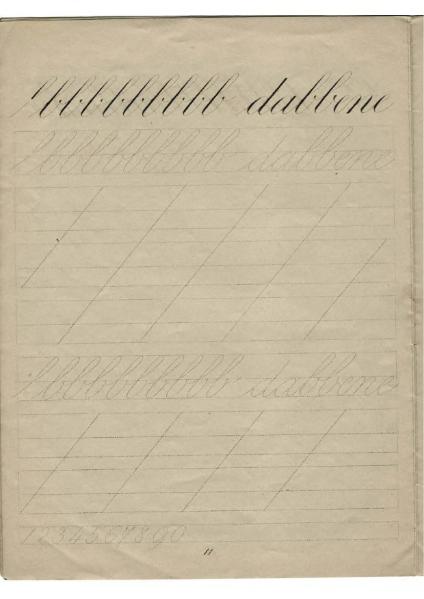 bbbbbbbbb dabbene
bbbbbbbbb dabbene
bbbbbbbbb dabbene
1234567890
11